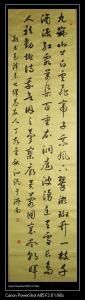 九嶷山上白雲飛帝子乘風下翠微斑竹一枝千
滴淚紅霞萬朵百重衣洞庭波涌連天雪長島
人歌動地詩我欲因之夢寥廓芙蓉國裏盡朝暉
毛澤東七律答友人
Canon PowerShot A85 F2.8 1/60s